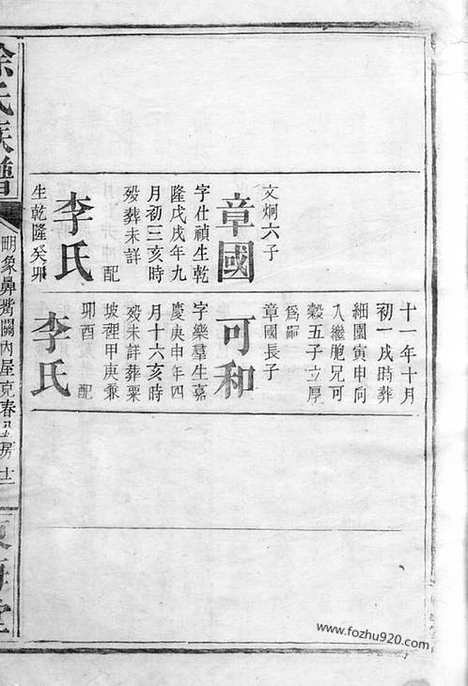 文炯六子
章國
字仕禎生乾
隆戊戌年九
月初三亥時
歿葬未詳
配
李氏
生乾隆癸卯
十一年十月
初一戌時葬
細園寅申向
入繼胞兄可
穀五子立厚
為嗣
章國長子
可和
字樂羣生嘉
慶庚申年四
月十六亥時
歿未詳葬栗
坡裡甲庚兼
卯酉 配
李氏
徐氏族譜
明象鼻嘴闗内屋克春公房
十二
東海堂
www.fozhu920.com